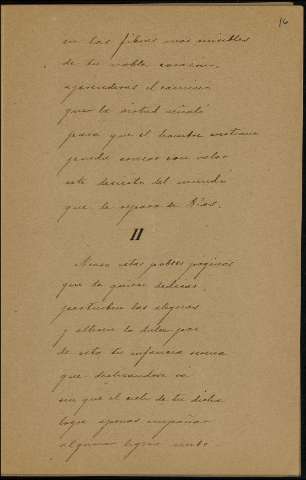 16
en las fibras más sensibles
de tu noble corazón,
aprenderás el camino
que la virtud señaló
para que el hombre cristiano
pueda cruzar con valor
este desierto del mundo
que le separa de Dios.
II
Acaso estas pobres páginas
que te quiero dedicar,
perturben las alegrías
y alteren la dulce paz
de esta tu infancia
que deslizándose va
sin que el cielo de tu dicha
logre apenas empañar